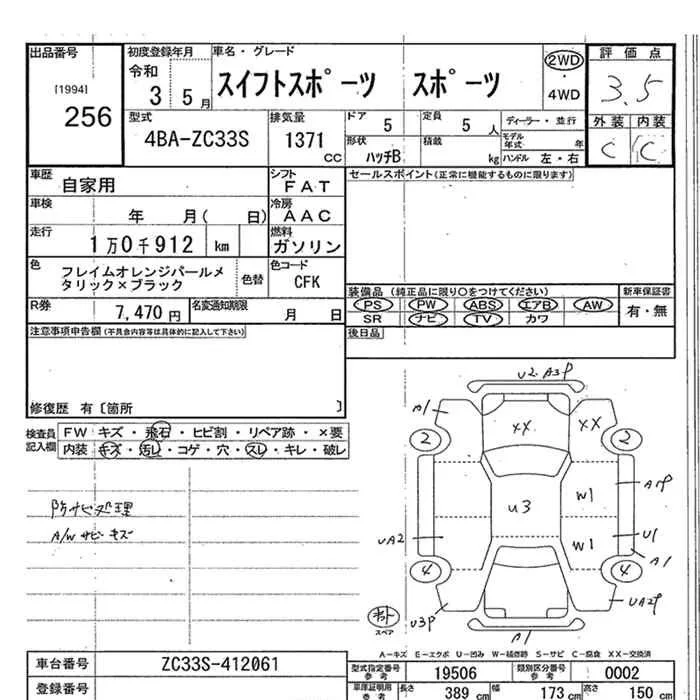 出品番号
[1994]
256
初度登録年月
令和
3 5月
車名・グレード
スイフトスポーツ スポーツ
2WD
・
4WD
評価点
3.5
外装 内装
C C
型式
4BA-ZC33S
排気量
1371
CC
ドア
5
定員
5 人
形状
ハッチB
積載
kg
ディーラー・並行
モデル年式 年
ハンドル 左・右
車歴
自家用
シフト
FAT
車検
年 月( 日)
冷房
AAC
走行
1万0千912 km
燃料
ガソリン
色
フレイムオレンジパールメ
タリック×ブラック
色替
色コード
CFK
R券
7,470円
名変通知期限
月 日
セールスポイント(正常に機能するものに限ります)
装備品 (純正品に限り○をつけてください)
PS PW ABS エアB AW
SR ナビ TV カワ
新車保証書
有・無
後日品
注意事項申告欄(不具合内容等は具体的に記入して下さい)
修復歴 有〔箇所 〕
検査員
記入欄
FW キズ・飛石・ヒビ割・リペア跡・×要
内装 キズ・汚レ・コゲ・穴・スレ・キレ・破レ
防サビ処理
A/W サビ キズ
U2. A3P
A1
XX XX
2 2
W1
A1P
U3
U1
UA2
W1
A1
4 4
UA2P
U3P
A1
スペア
A-キズ E-エクボ U-凹み W-補修跡 S-サビ C-腐食 XX-交換済
車台番号
ZC33S-412061
登録番号
型式指定番号
参考
19506
類別区分番号
参考
0002
車庫証明用
参考
長さ 389 cm 幅 173 cm 高さ 150 cm